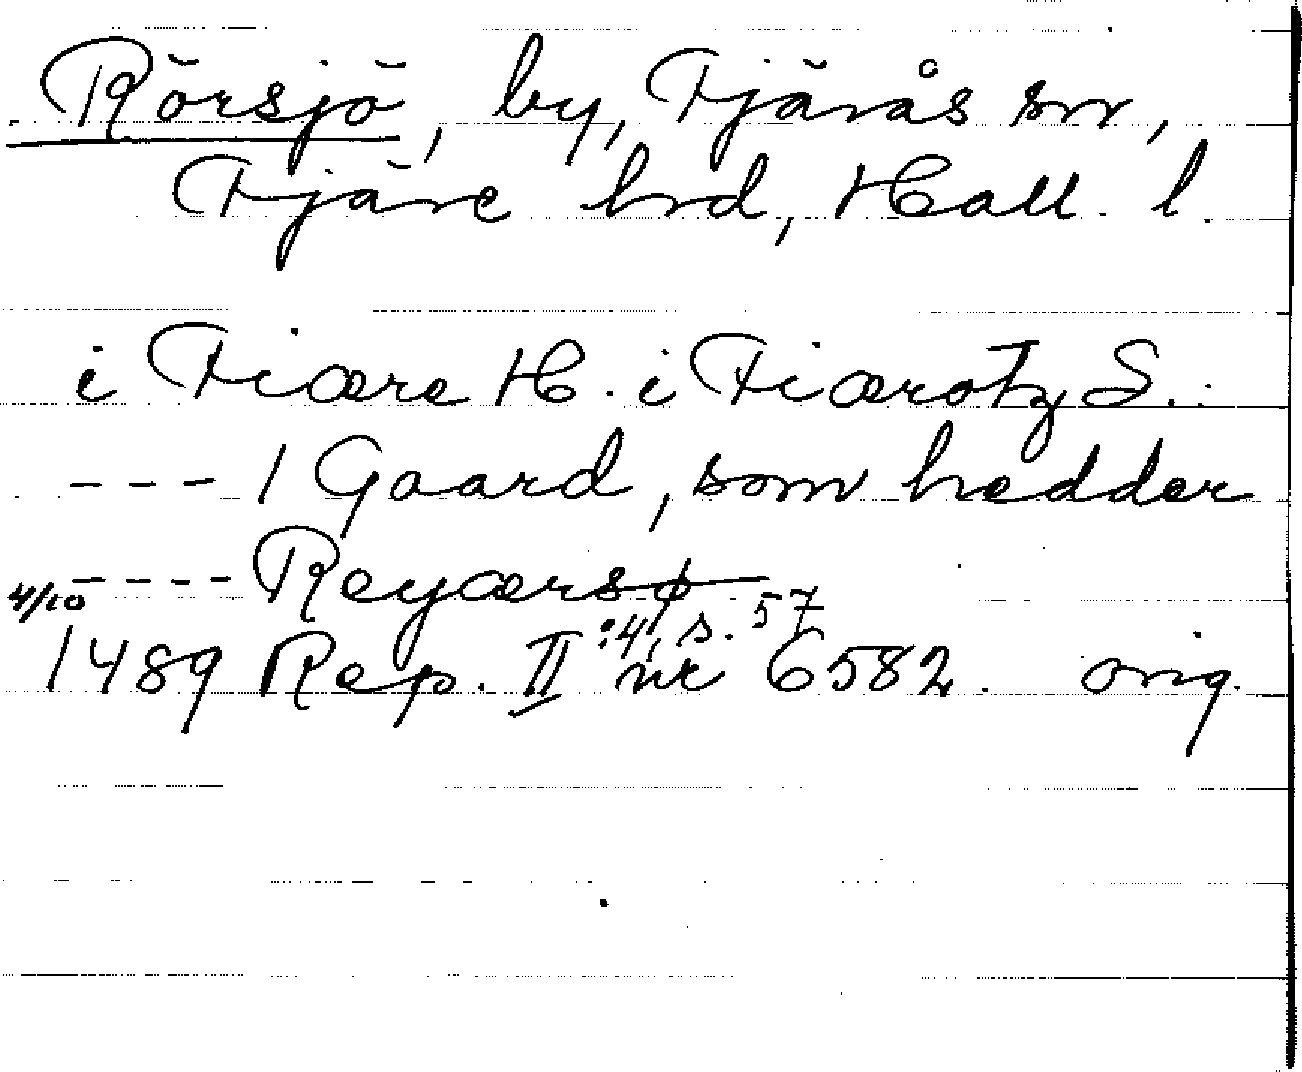 Rörsjö, by, Fjärås sn,
Fjäre hd, Hall. l.
i Fiære H. i Fiærotz S.
--- 1 Gaard, som hedder
---- Reyærsø
4/10 :4, s. 57
1489 Rep. II nr 6582. orig.